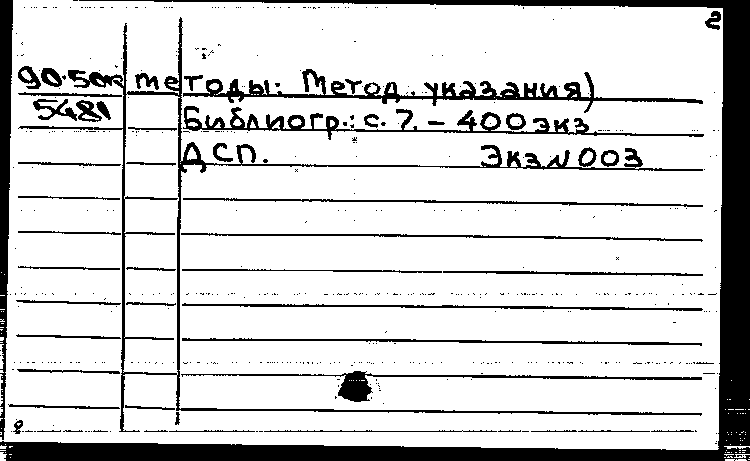 2
90-50к методы: Метод. указания)
5481 Библиогр.: с. 7. – 400 экз.
ДСП. Экз N 003